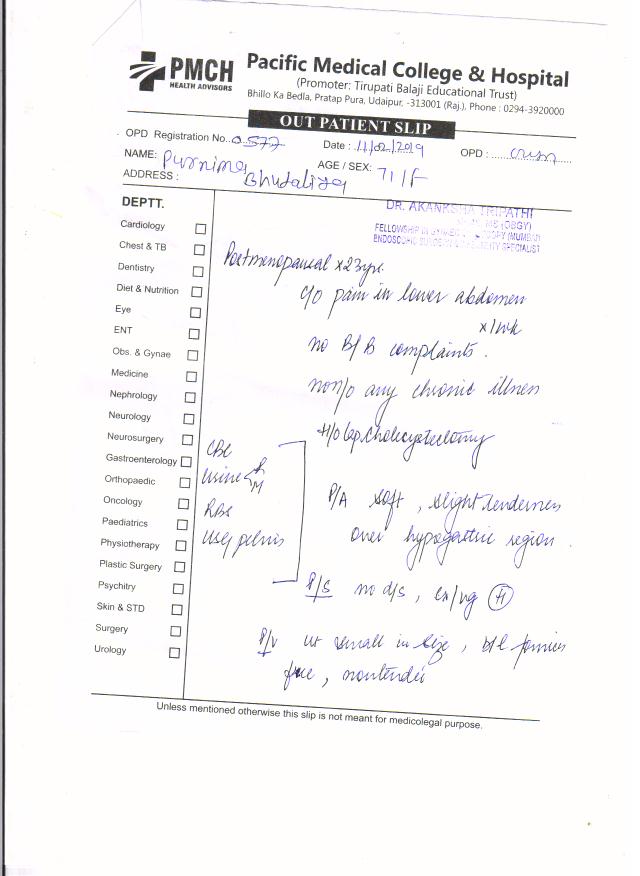 PMCH
HEALTH ADVISORS
Pacific Medical College & Hospital
(Promoter: Tirupati Balaji Educational Trust)
Bhillo Ka Bedla, Pratap Pura, Udaipur, -313001 (Raj.), Phone : 0294-3920000
OUT PATIENT SLIP
OPD Registration No. 0577 Date : 11/02/2019 OPD :
NAME: Purnima Bhudaliya AGE / SEX: 71/F
ADDRESS :
DEPTT.
DR. AKANKSHA TRIPATHI
MS (OBGY)
FELLOWSHIP IN (MUMBAI
ENDOSCOPIC SPECIALIST
Cardiology
Chest & TB
Dentistry
Diet & Nutrition
Eye
ENT
Obs. & Gynae
Medicine
Nephrology
Neurology
Neurosurgery
Gastroenterology
Orthopaedic
Oncology
Paediatrics
Physiotherapy
Plastic Surgery
Psychitry
Skin & STD
Surgery
Urology
Postmenopausal x 23yrs.
c/o pain in lower abdomen
x 1wk
no B/B complaints.
no h/o any chronic illness
H/o lap cholecystectomy
CBC
urine R
M
RBS
USG pelvis
P/A soft, slight tenderness
over hypogastric region.
P/S no d/s, cx/vg (H)
P/V ut small in size, b/l fornices
free, nontender
Unless mentioned otherwise this slip is not meant for medicolegal purpose.